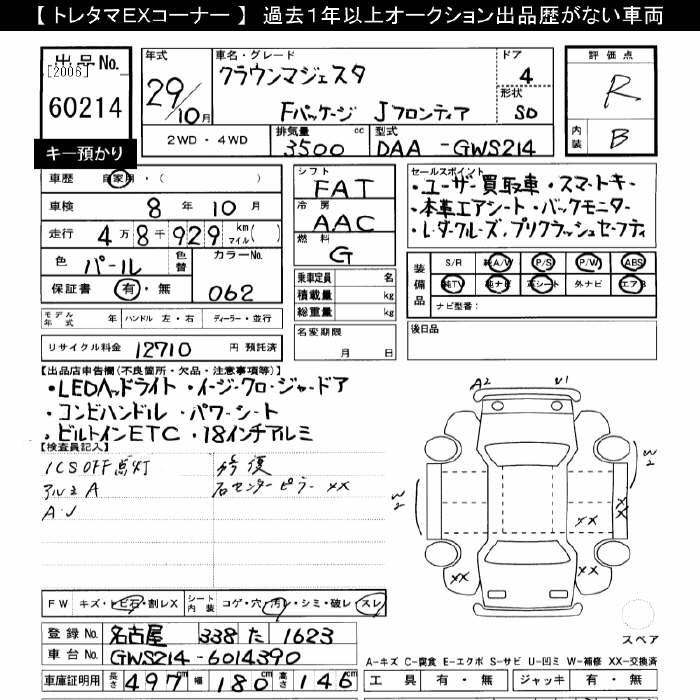 【 トレタマEXコーナー 】 過去１年以上オークション出品歴がない車両
出品No.
[2006]
60214
キー預かり
年式
29/10月
車名・グレード
クラウンマジェスタ
Fパッケージ Jフロンティア
ドア
4
形状
SD
評価点
R
内装
B
2WD ・ 4WD
排気量
3500 cc
型式
DAA -GWS214
車歴 自家用・( )
車検 8 年 10 月
走行 4 万 8 千 929 km マイル( )
色 パール
色替
カラーNo.
062
保証書 有・無
モデル年式 年
ハンドル 左・右
ディーラー・並行
リサイクル料金 12710 円 預託済
シフト
FAT
冷房
AAC
燃料
G
乗車定員 名
積載量 kg
総重量 kg
名変期限
月 日
セールスポイント
・ユーザー買取車・スマートキー
・本革エアシート・バックモニター
・レーダークルーズ・プリクラッシュセーフティ
装備品
S/R 純A/W P/S P/W ABS
純TV 純ナビ 革シート 外ナビ エアB
ナビ型番：
後日品
【出品店申告欄(不良箇所・欠品・注意事項等)】
・LEDヘッドライト・イージークロージャードア
・コンビハンドル・パワーシート
・ビルトインETC・18インチアルミ
【検査員記入】
ICS OFF 点灯
アルミA
修復
右センターピラーXX
A2
U1
W2
W2
XX
XX
XX
XX
XX
FW キズ・トビ石・割レX
シート内装 コゲ・穴・汚レ・シミ・破レ・スレ
登録No. 名古屋 338 た 1623
車台No. GWS214-6014390
車庫証明用 長さ 497 幅 180 高さ 146
スペア
A-キズ C-腐食 E-エクボ S-サビ U-凹ミ W-補修 XX-交換済
工具 有・無 ジャッキ 有・無